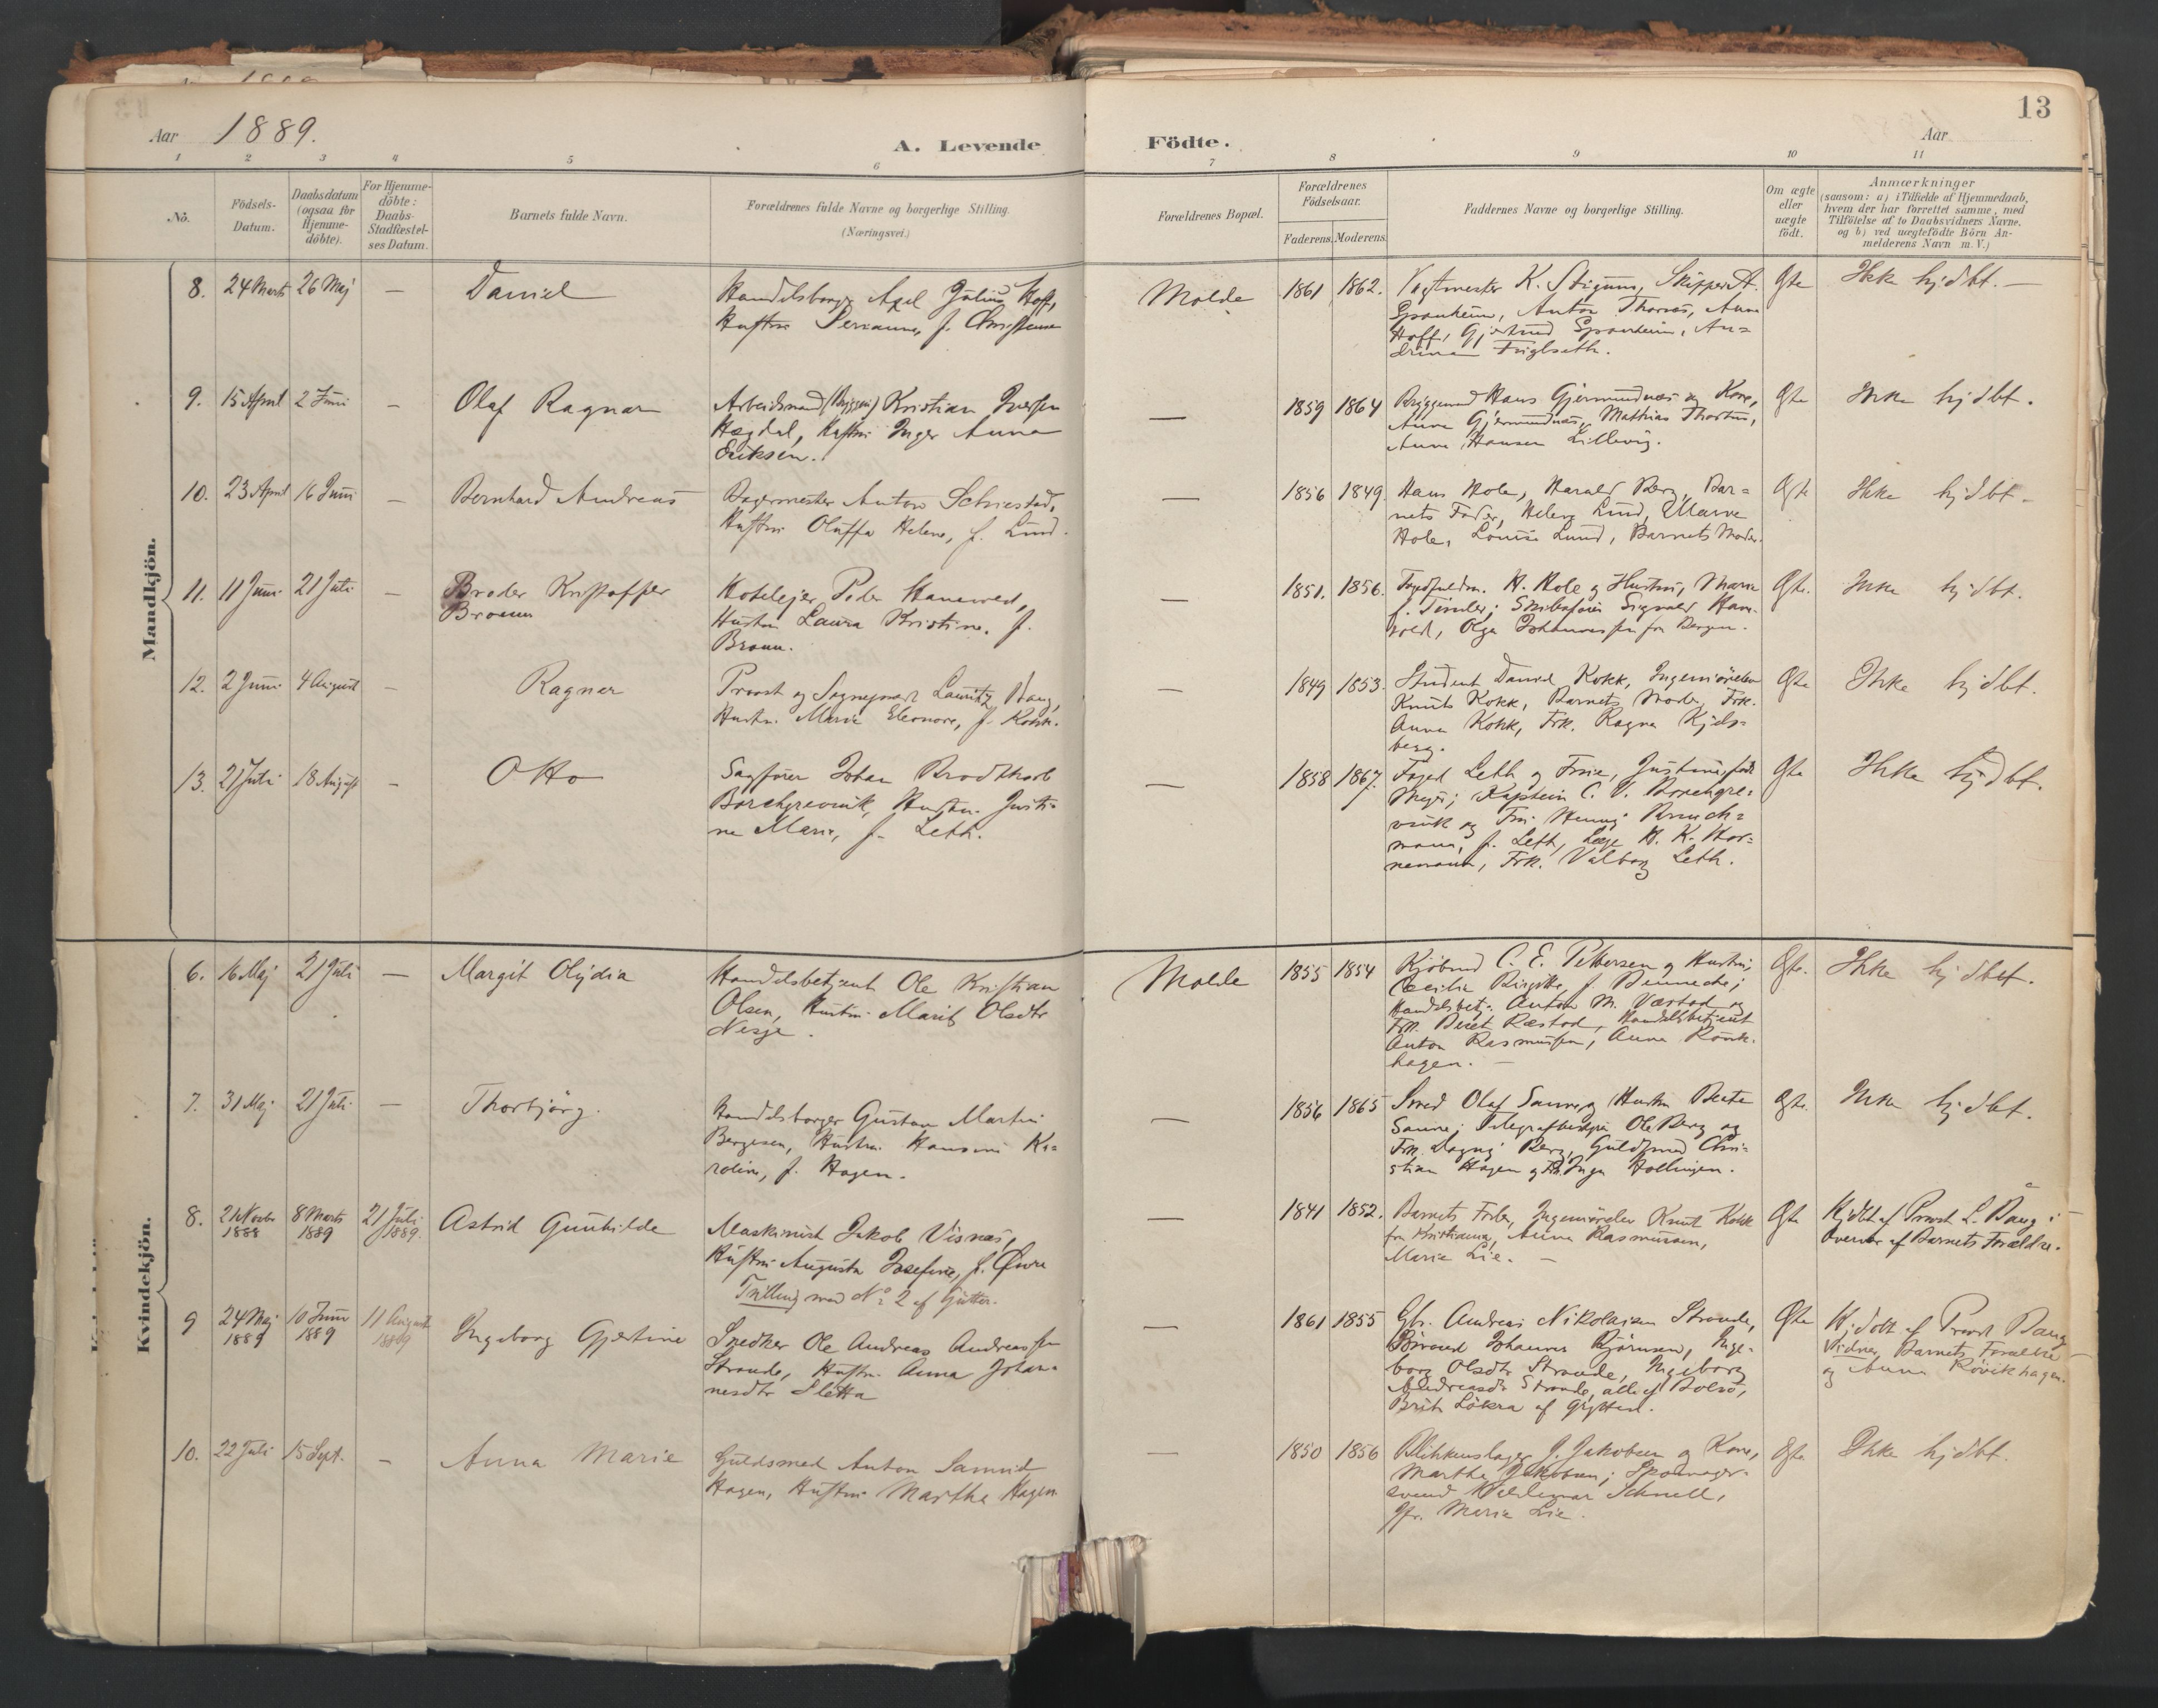 13
Aar 1889. A. Levende Födte. Aar
1 2 3 4 5 6 7 8 9 10 11
No.
Födsels-Datum.
Daabsdatum (ogsaa for Hjemme-döbte).
For Hjemme-döbte: Daabs-Stadfæstel-ses Datum.
Barnets fulde Navn.
Forældrenes fulde Navne og borgerlige Stilling.
(Næringsvei.)
Forældrenes Bopæl.
Forældrenes Födselsaar.
Faderens. Moderens.
Faddernes Navne og borgerlige Stilling.
Om ægte eller uægte födt.
Anmærkninger
(saasom: a) i Tilfælde af Hjemmedaab,
hvem der har forrettet samme, med
Tilföielse af to Daabsvidners Navne,
og b) ved uægtefödte Börn An-
melderens Navn m. V.)
Mandkjön.
8. 24 Marts 26 Maj — Daniel
Handelsborger Axel Julius Hoff,
Hustru f. Christensen
Molde 1861 1862.
K. Stigum, Skipper A.
Spanheim, Anton Thornes, Anna
Hoff, Gjertrud Spanheim, An=
drina
Ægte Ikke hjdbt. —
9. 15 April 2 Juni — Olaf Ragnar
Arbeidsmand (Bryggen) Kristian Iversen
Hægdal, Hustru Inger Anna
Eriksen.
— 1859 1864
Bryggemand Hans Gjermundnæs og Kone,
Anna Gjermundnæs, Matthias
Anna Hansen Lillevig.
Ægte Ikke hjdbt.
10. 23 April 16 Juni — Bernhard Andreas
Bagermester Anton
Hustru Oluffa Helene, f. Lund.
— 1856 1849
Hans Hole, Harald Berg, Bar=
nets Fader, Helene Lund, Marie
Hole, Louise Lund, Barnets Moder.
Ægte Ikke hjdbt.
11. 11 Juni 21 Juli — Broder Kristoffer
Broum
Hotelejer Peder Hanevold,
Hustru Laura Kristine, f.
Broum.
— 1851. 1856.
H. Hole og Hustru, Marie
f. Skibsfører Sigvald Hane-
vold, Olga Johannessen fra Bergen.
Ægte. Ikke hjdbt.
12. 2 Juni 4 August — Ragnar
Provst og Sognepræst Lauritz Daug,
Hustru Marie Eleonore, f. Kokk.
— 1849 1853.
Student Daniel Kokk, Ingeniørelev
Knut Kokk, Barnets Moder, Frk.
Anna Kokk, Frk. Ragna Kjels=
berg.
Ægte Ikke hjdbt.
13. 21 Juli 18 August — Otto
Sagfører Johan Brodtkorb
Borchgrevink, Hustru Justi=
ne Marie, f. Leth.
— 1858 1867.
Foged Leth og Frue, Justine, født
Meyer; Kaptein C. V. Borchgre=
vink og Fru Henny
mann, f. Leth, Læge H. K. Hor=
nemann, Frk. Valborg Leth.
Ægte Ikke hjdbt.
Kvindekjön.
6. 16 Maj 21 Juli — Margit Olydia
Handelsbetjent Ole Kristian
Olsen, Hustru Marit Olsdtr
Nesje.
Molde 1855 1854
Kjøbmd C. E. Pettersen og Hustru,
Cecilie Birgitte, f. Denneche;
Handelsbetj. Anton M. Værstad og
Frk. Beret Ræstad, Handelsbetjent
Anton Rasmussen, Anna Røvik-
hagen. —
Ægte. Ikke hjdbt.
7. 31 Maj 21 Juli — Thorbjørg.
Handelsborger Gustav Martin
Bergesen, Hustru Hansine Ka=
roline, f. Hagen.
— 1856 1865
Smed Olaf Sanne og Hustru Beate
Sanne; Telegrafbestyrer Ole Berg og
Frk. Dagny Berg, Guldsmed Chri-
stian Hagen og Frk. Inga Hollingen.
Ægte. Ikke hjdbt.
8. 21 Novbr 1888 8 Marts 1889 21 Juli 1889. Astrid Gunhilde
Maskinist Jakob Visnæs,
Hustru Augusta Josefine, f. Øwre
Tvilling med No 2 af Gutter.
— 1841 1852.
Barnets Fader, Ingeniørelev Knut Kokk
fra Kristiania, Anna Rasmussen,
Marie Lie. —
Ægte Hjdbt af Provst L. Daug i
Overvær af Barnets Forældre.
9 24 Maj 1889 10 Juni 1889 11 August 1889 Ingeborg Gjertine
Snedker Ole Andreas Andreassen
Strande, Hustru Anna Johan-
nesdtr Sletta
— 1861 1855
Gbr. Andreas Nikolaisen Strande,
Johannes Bjørnsen, Inge-
borg Olsdtr Strande, Ingeborg
Andreasdtr Strande, alle af Bolsø,
Brit Løkra af Grytten.
Ægte Hjdbt af Provst Daug
Vidner, Barnets Forældre
og Anna Røvikhagen.
10. 22 Juli 15 Sept. — Anna Marie
Guldsmed Anton Samuel
Hagen, Hustru Martha Hagen
— 1850 1856
Blikkenslager J. Jakobsen og Kone,
Martha Jakobsen;
svend Valdemar Schnell,
Jfr. Marie Lie.
Ægte Ikke hjdbt.